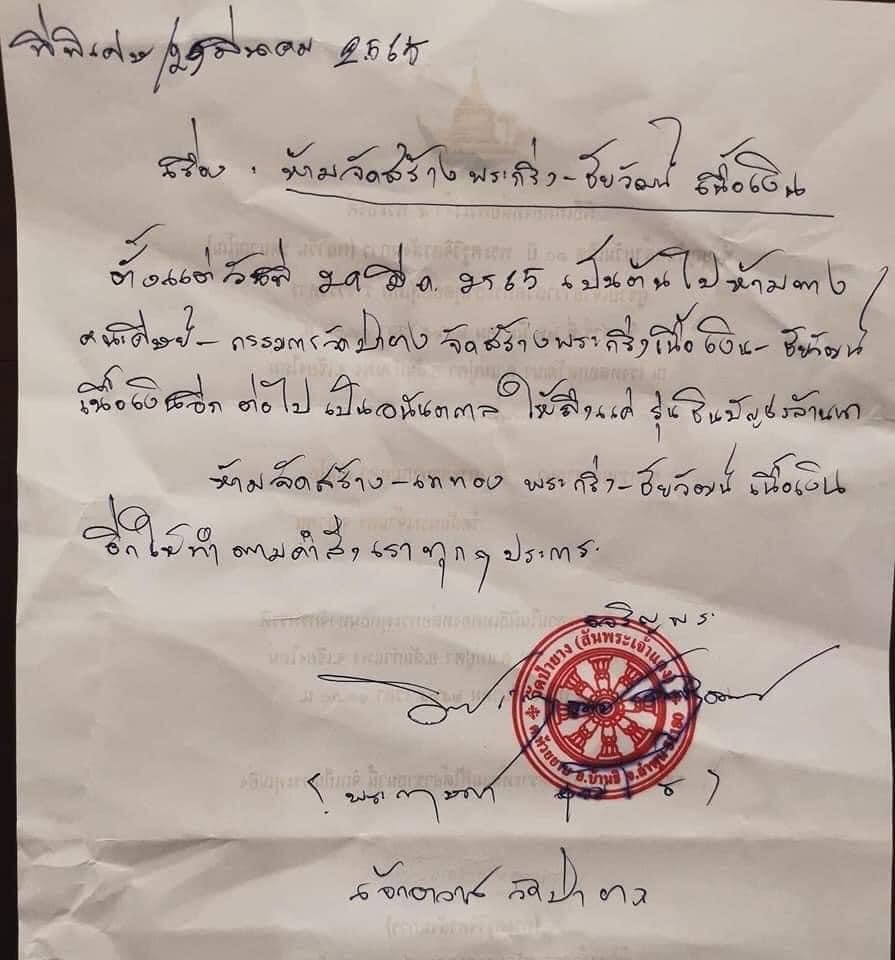 ที่พิเศษ/ มีนาคม ๒๕๖๕
เรื่อง : ห้ามจัดสร้างพระกริ่ง-ชัยวัฒน์ เนื้อเงิน
ตั้งแต่วันที่ มี.ค. ๒๕๖๕ เป็นต้นไปห้ามทาง
คณะศิษย์-กรรมการวัดป่ายาง จัดสร้างพระกริ่งเนื้อเงิน-ชัยวัฒน์
เนื้อเงินอีก ต่อไป เป็นอนันตกาล ให้ถึงแค่ รุ่น ชินบัญชรล้านนา
ห้ามจัดสร้าง-เททอง พระกริ่ง-ชัยวัฒน์ เนื้อเงิน
อีกให้ทำตามคำสั่งเราทุกๆประการ
เจริญพร
วัดป่ายาง (สันพระเจ้าแดง)
ต.ห้วยยาบ อ.บ้านธิ จ.ลำพูน 51180
เจ้าอาวาส วัดป่ายาง